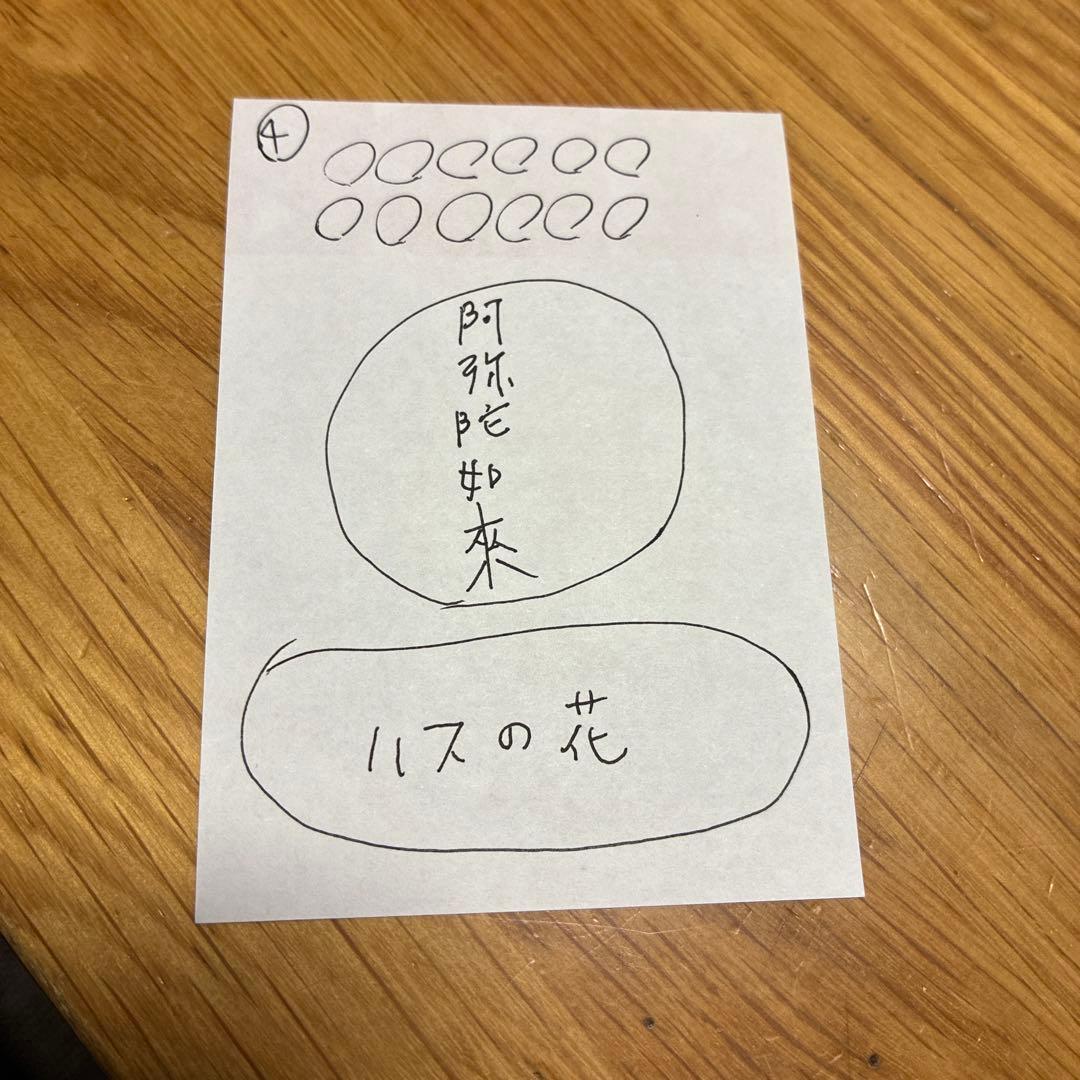 ④
○○○○○○
○○○○○○
阿弥陀如來
ハスの花